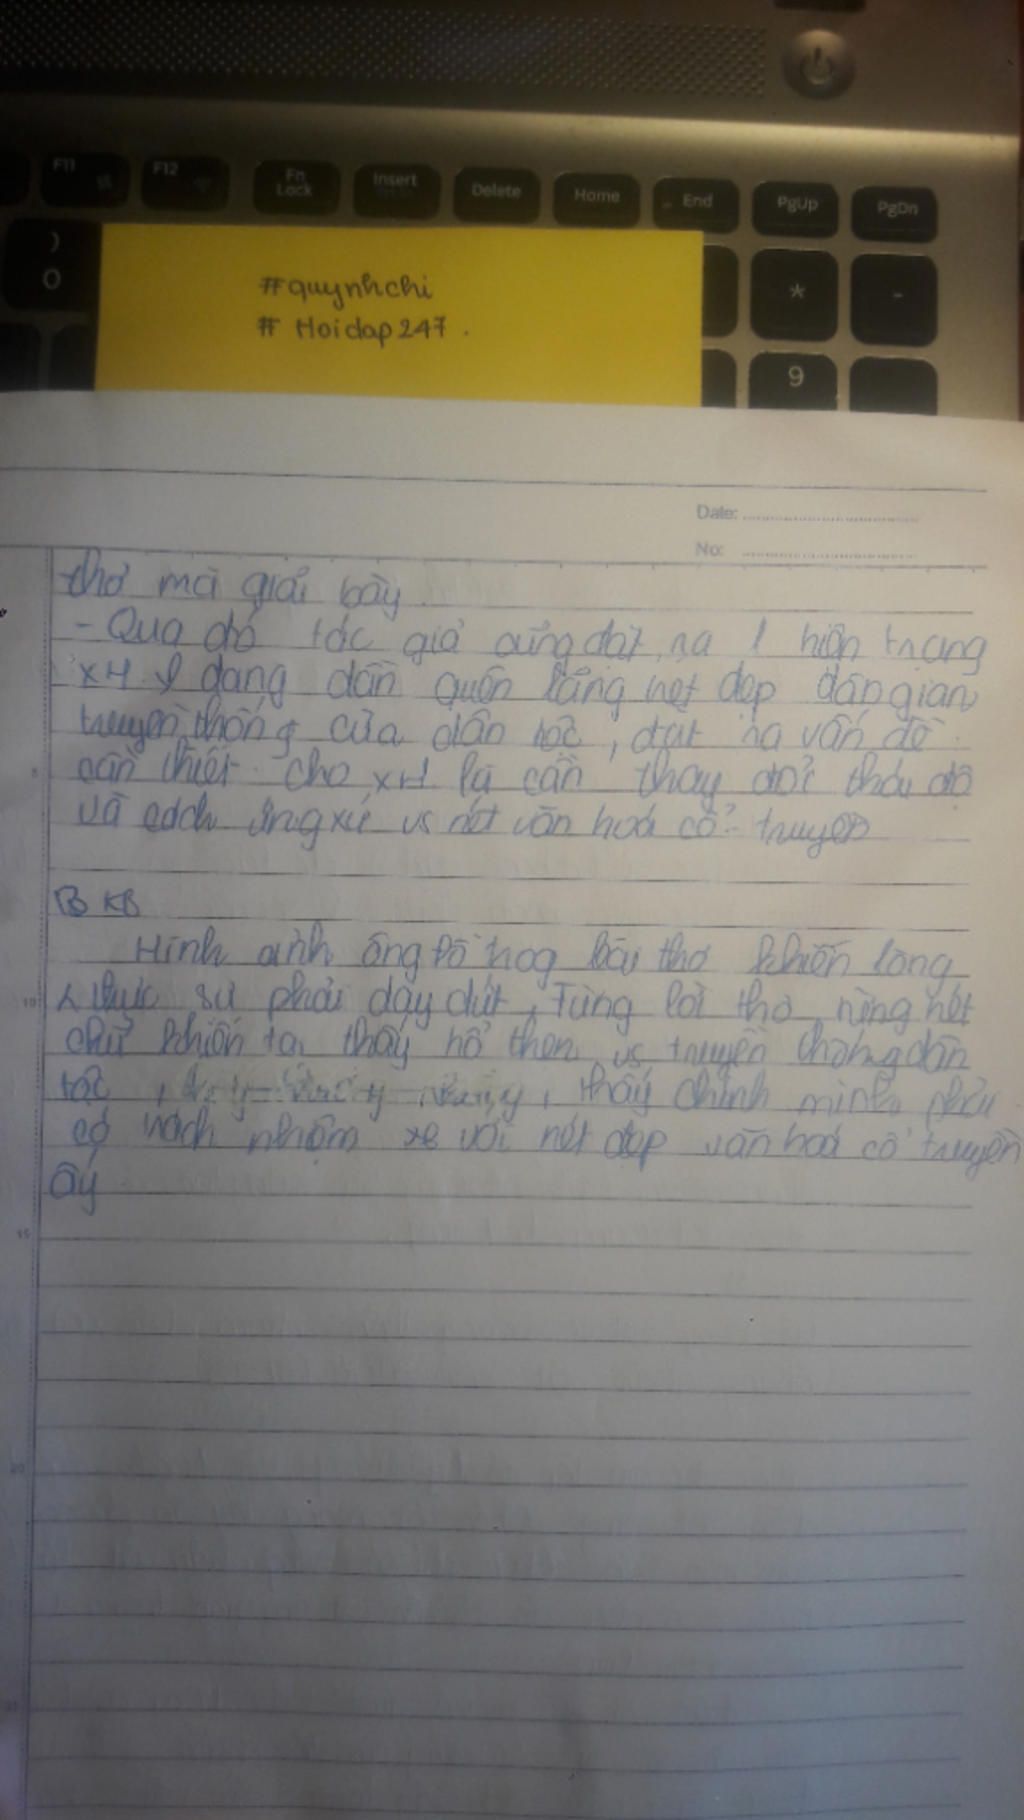 F11 F12 Fn Lock Insert Delete Home End PgUp PgDn
) 0 * -
9
#quynhchi
# Hoidap247.
Date:
No:
thơ mà giải bày
- Qua đó tác giả cũng đặt ra 1 hiện trạng
XH đang dần quên lãng nét đẹp dân gian
truyền thống của dân tộc, đặt ra vấn đề
cần thiết cho XH là cần thay đổi thái độ
và cách ứng xử vs nét văn hoá cổ truyền
5
B KB
Hình ảnh ông đồ trog bài thơ khiến lòng
thực sự phải day dứt, Từng lời thơ, từng nét
10
chữ khiến ta thấy hổ thẹn vs truyền thống dân
tộc, thấy chính mình phải
có trách nhiệm với nét đẹp văn hoá cổ truyền
ấy
15
20